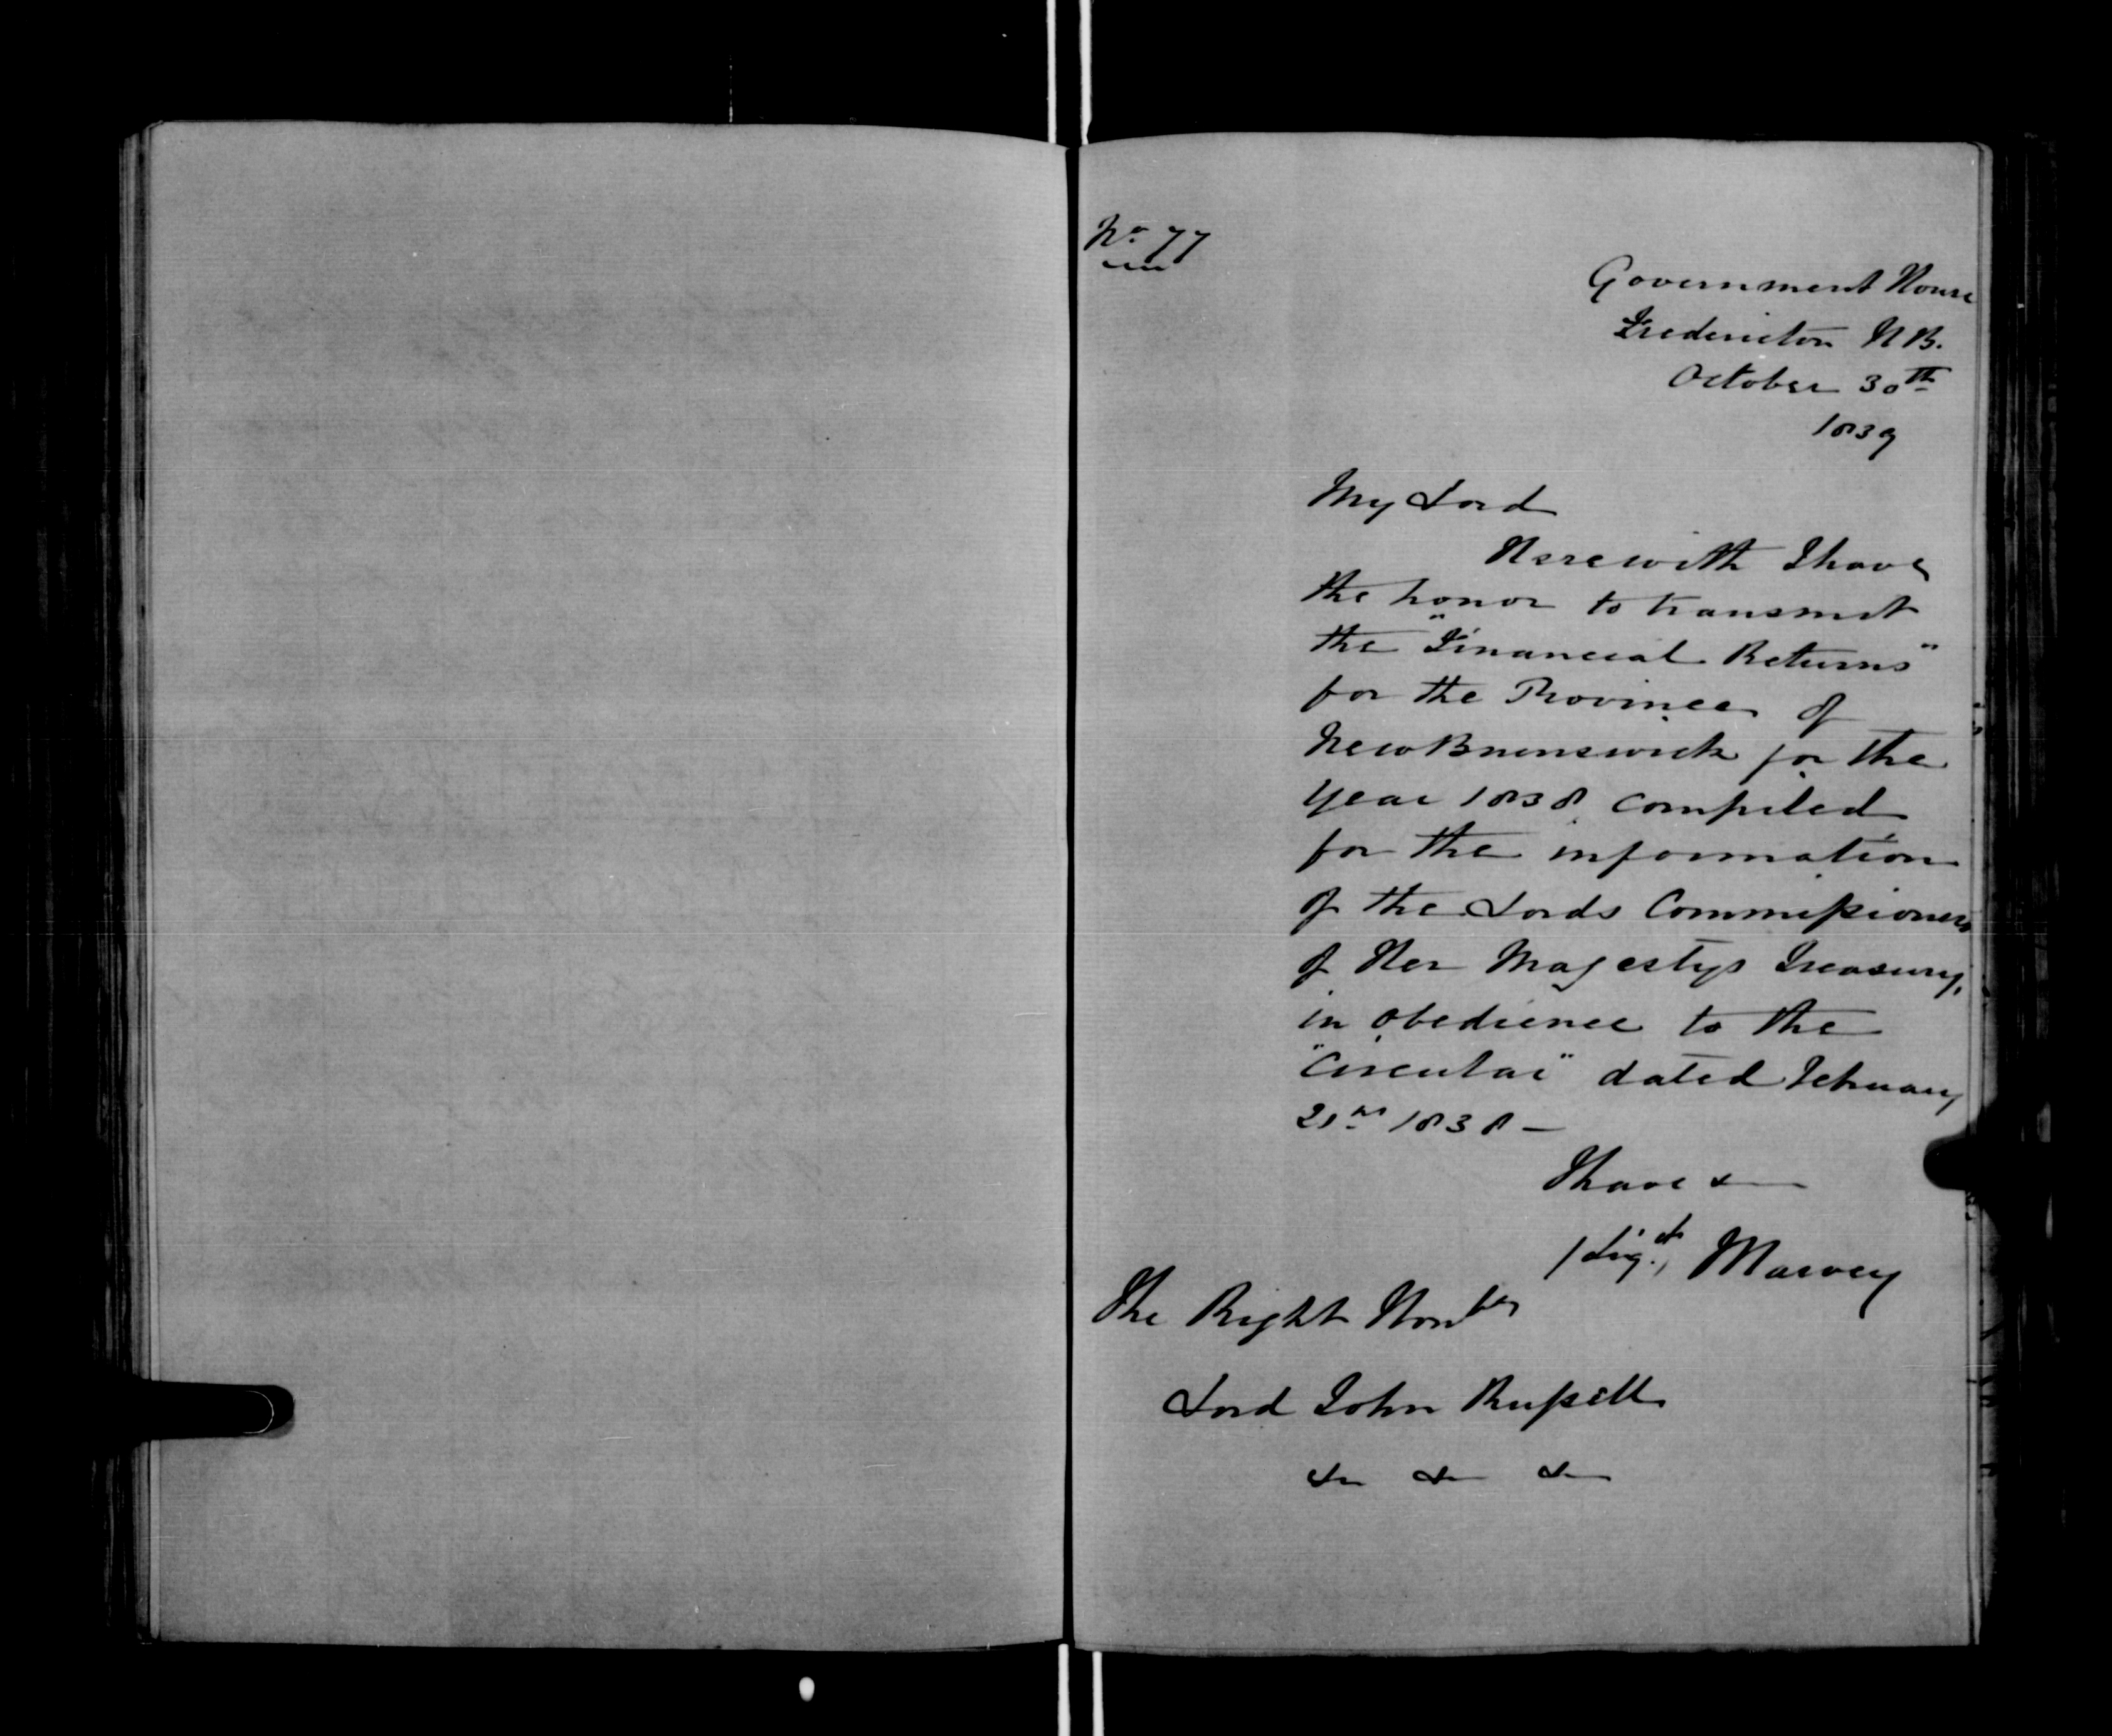 No. 77
Government House
Fredericton N B.
October 30th
1839
My Lord
Herewith I have
the honor to transmit
the "Financial Returns"
for the Province of
New Brunswick for the
year 1838 compiled
for the information
of the Lords Commissioners
of Her Majestys Treasury,
in obedience to the
"Circular" dated February
21st 1838 —
I have &
/ Sigd., Harvey
The Right Honble
Lord John Russell
& & &